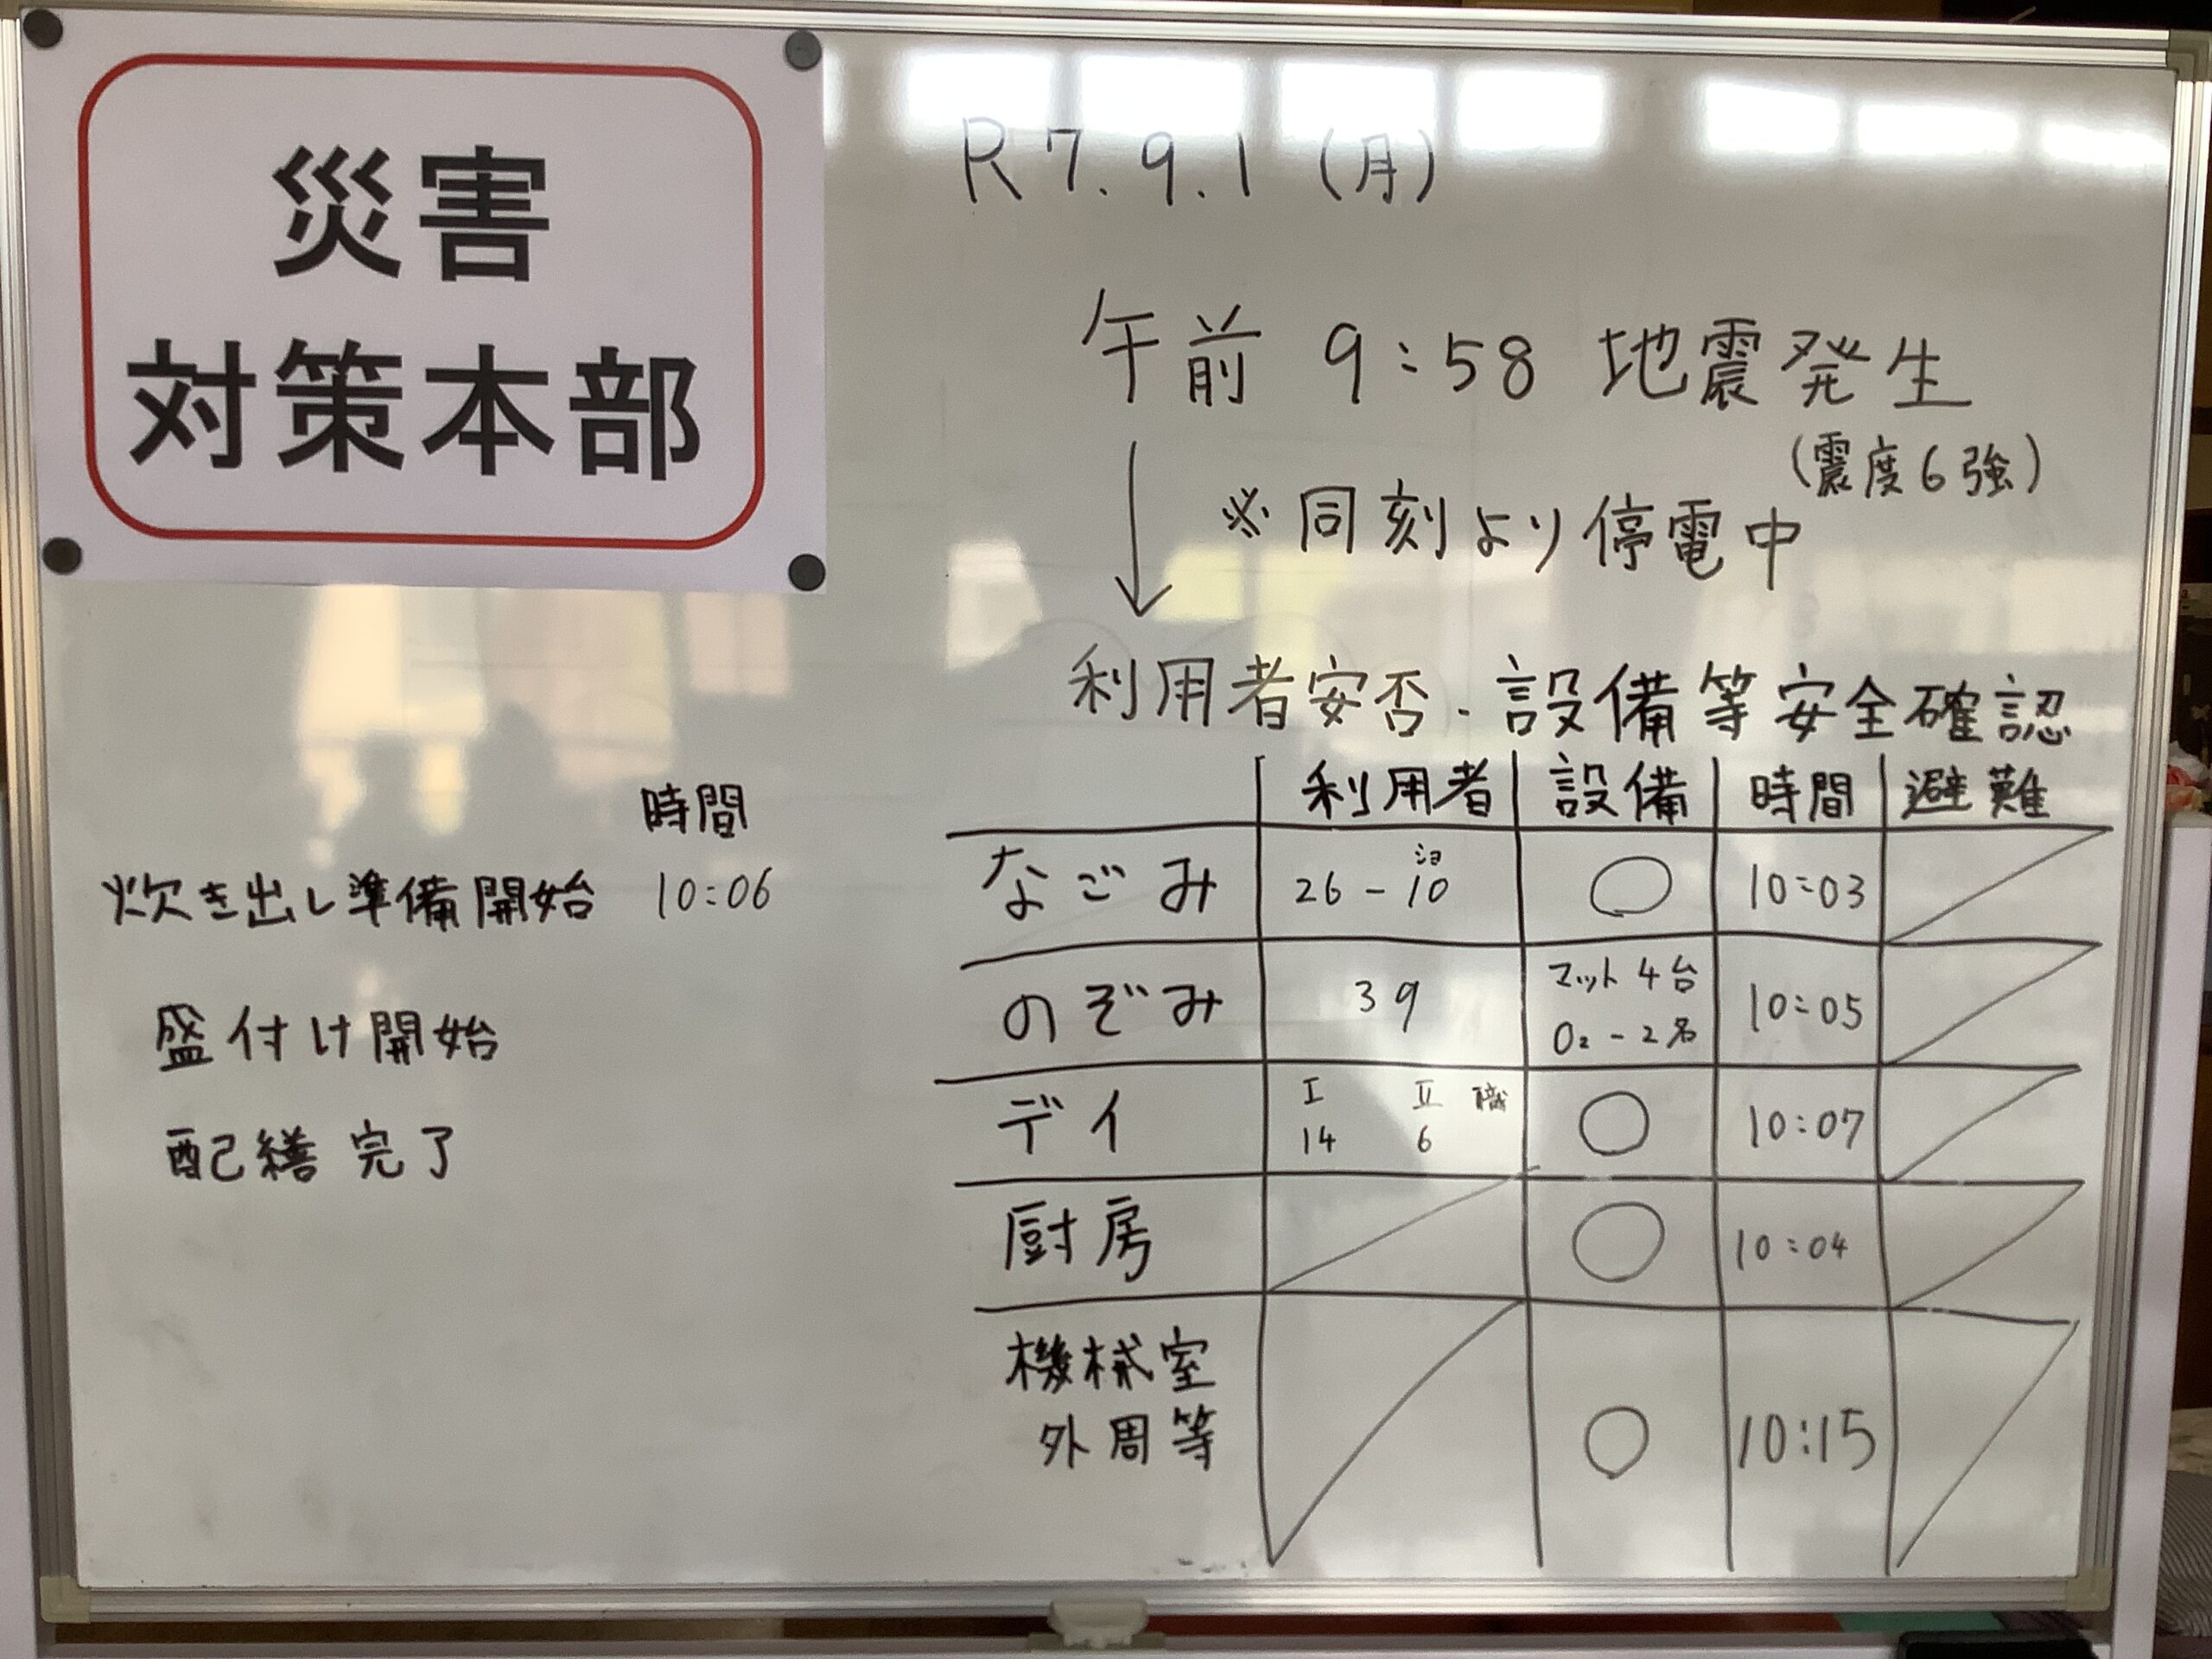 災害
対策本部
R7.9.1(月)
午前 9:58 地震発生
(震度6強)
※同刻より停電中
利用者安否・設備等安全確認
時間
炊き出し準備開始 10:06
盛付け開始
配繕完了
利用者 設備 時間 避難
なごみ 26-10 ショ ○ 10:03
のぞみ 39 マット4台 O₂-2名 10:05
デイ Ⅰ 14 Ⅱ 6 職 ○ 10:07
厨房 ○ 10:04
機械室
外周等 ○ 10:15